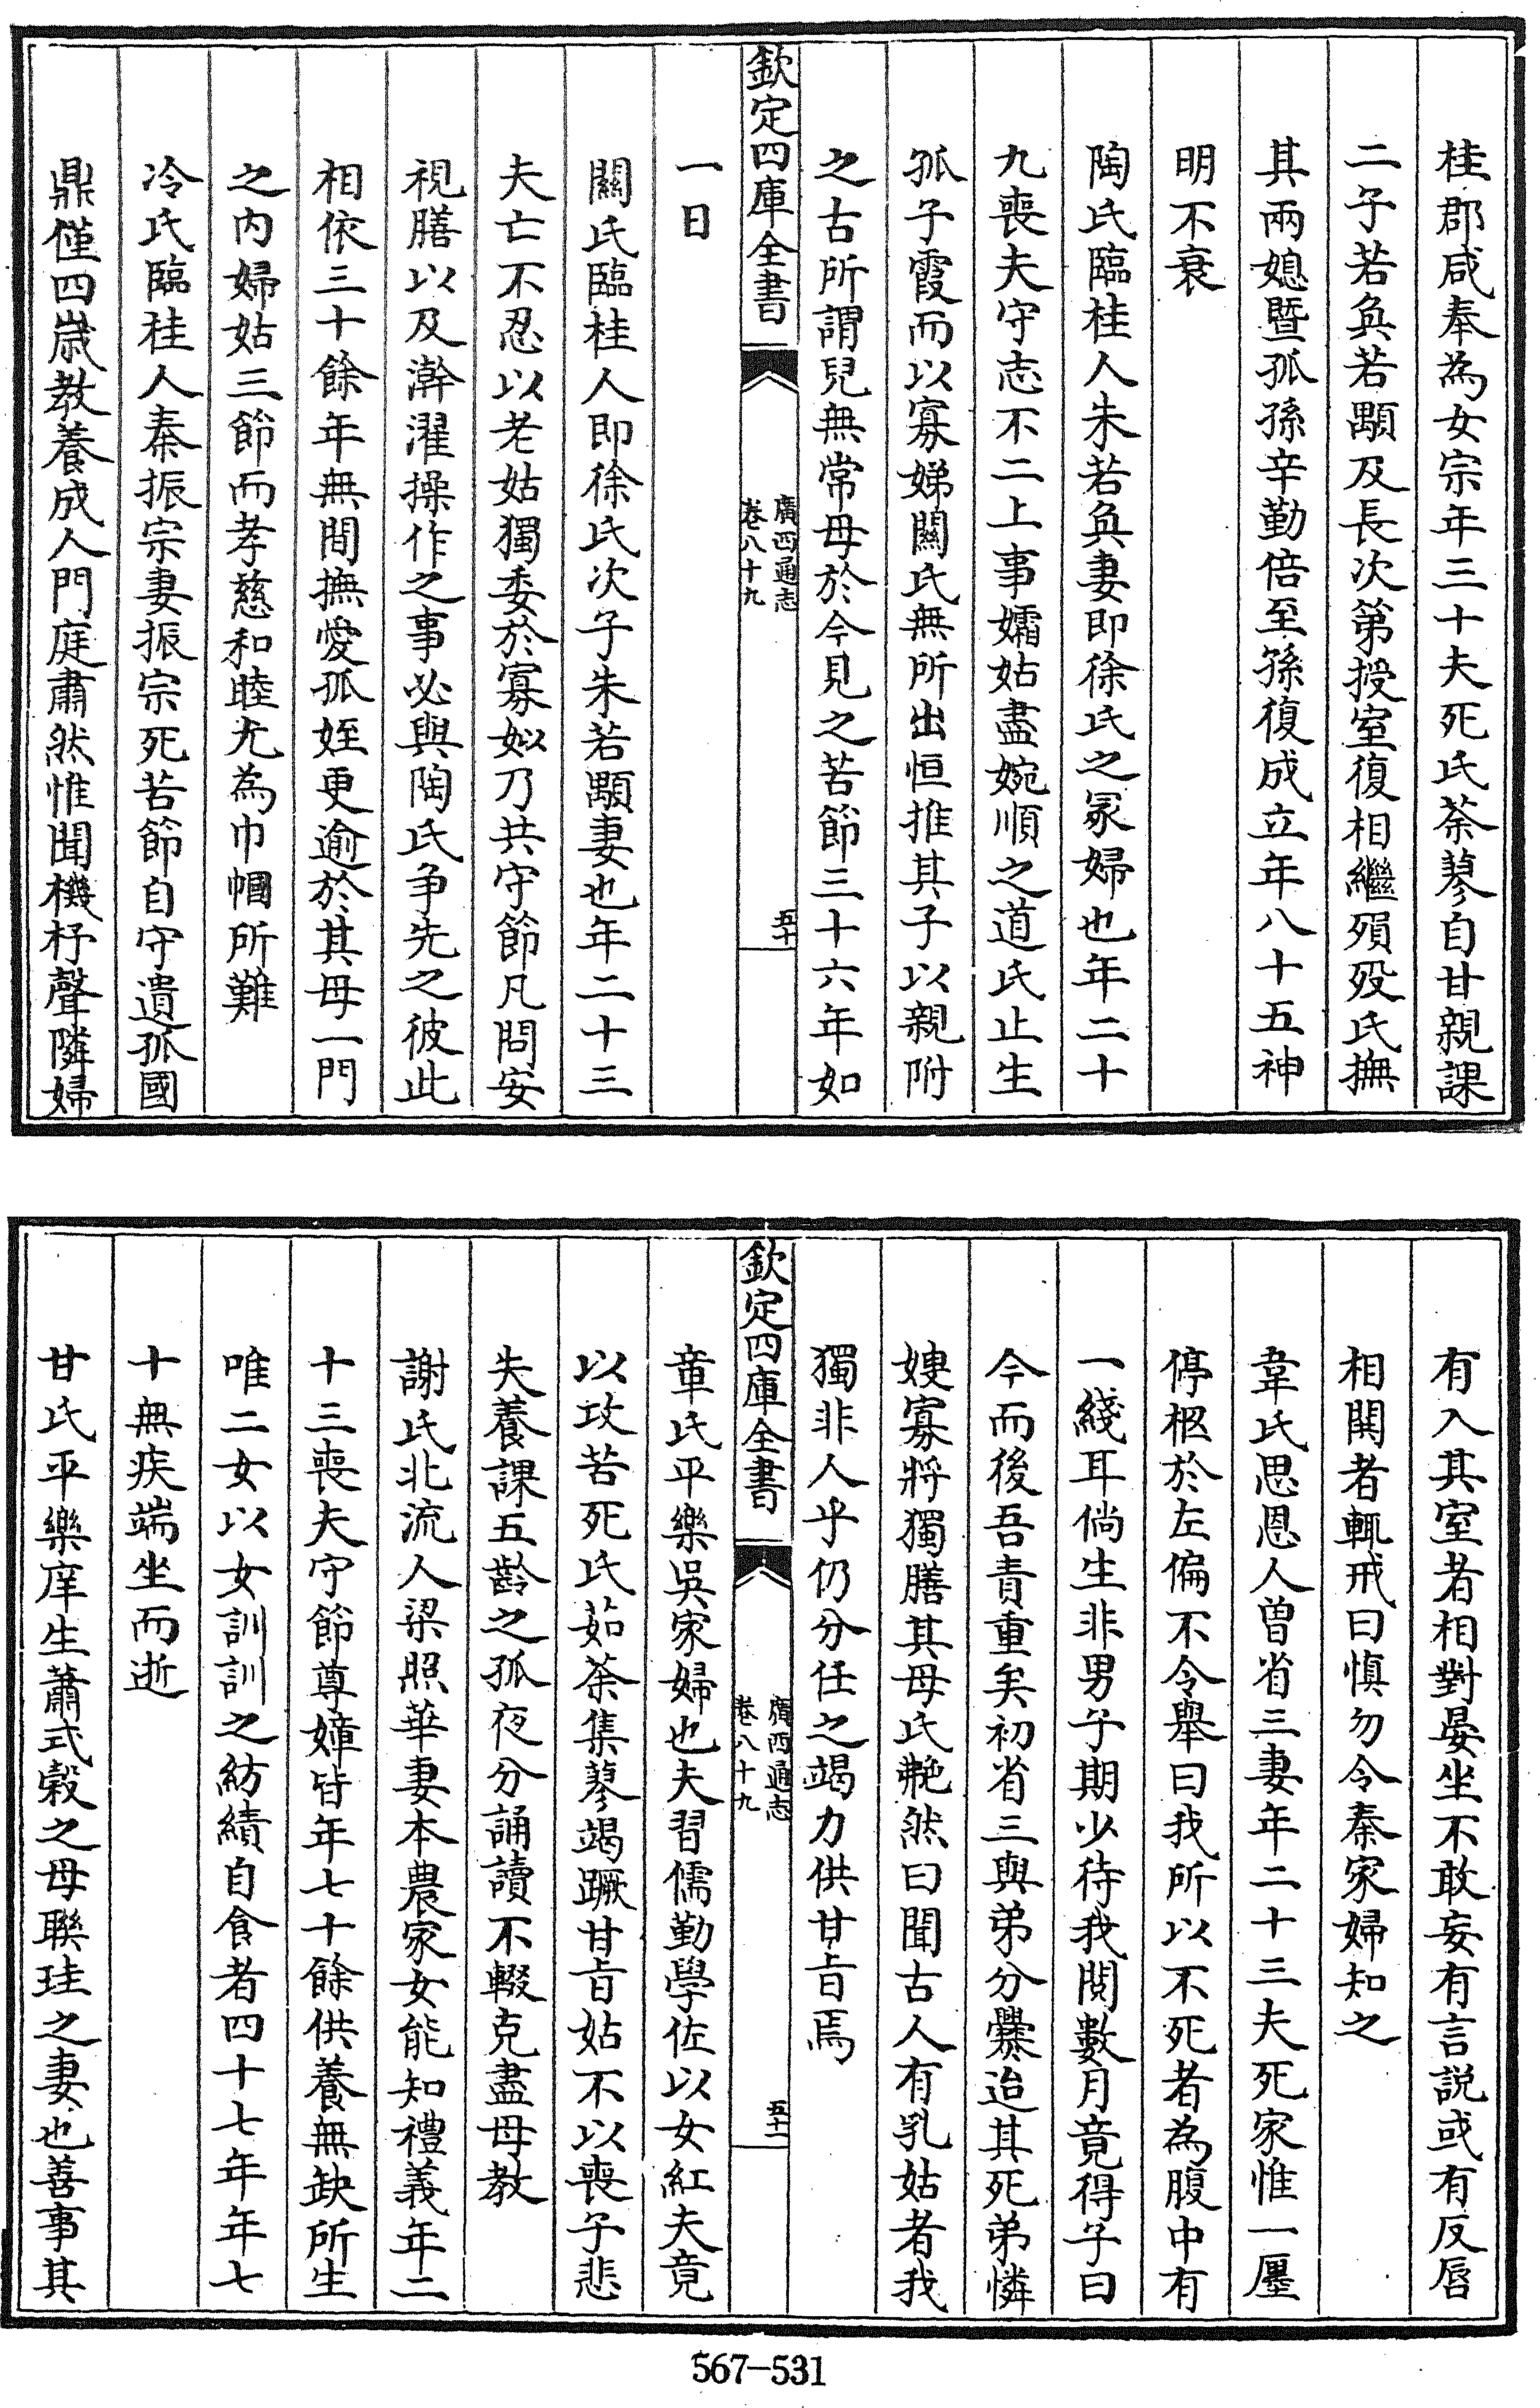 桂郡咸奉為女宗年三十夫死氏荼蓼自甘親課
二子若奐若顒及長次第授室復相繼殞歿氏撫
其兩媳暨孤孫辛勤倍至孫復成立年八十五神
明不衰
陶氏臨桂人朱若奐妻即徐氏之冢婦也年二十
九喪夫守志不二上事孀姑盡婉順之道氏止生
孤子霞而以寡娣關氏無所出恒推其子以親附
之古所謂兒無常母於今見之苦節三十六年如
欽定四庫全書
廣西通志
卷八十九
五十
一日
關氏臨桂人即徐氏次子朱若顒妻也年二十三
夫亡不忍以老姑獨委於寡姒乃共守節凡問安
視膳以及澣濯操作之事必與陶氏争先之彼此
相依三十餘年無間撫愛孤姪更逾於其母一門
之内婦姑三節而孝慈和睦尤為巾幗所難
冷氏臨桂人秦振宗妻振宗死苦節自守遺孤國
鼎僅四歲教養成人門庭肅然惟聞機杼聲隣婦
有入其室者相對晏坐不敢妄有言説或有反唇
相鬨者輒戒曰慎勿令秦家婦知之
韋氏思恩人曾省三妻年二十三夫死家惟一廛
停柩於左偏不令舉曰我所以不死者為腹中有
一綫耳倘生非男子期少待我閱數月竟得子曰
今而後吾責重矣初省三與弟分爨迨其死弟憐
㛮寡將獨膳其母氏艴然曰聞古人有乳姑者我
獨非人乎仍分任之竭力供甘旨焉
欽定四庫全書
廣西通志
卷八十九
五十一
章氏平樂吳家婦也夫習儒勤學佐以女紅夫竟
以攻苦死氏茹荼集蓼竭蹶甘旨姑不以喪子悲
失養課五齡之孤夜分誦讀不輟克盡母教
謝氏北流人梁照華妻本農家女能知禮義年二
十三喪夫守節尊嫜皆年七十餘供養無缺所生
唯二女以女訓訓之紡績自食者四十七年年七
十無疾端坐而逝
甘氏平樂庠生蕭式穀之母聯珪之妻也善事其
567—531